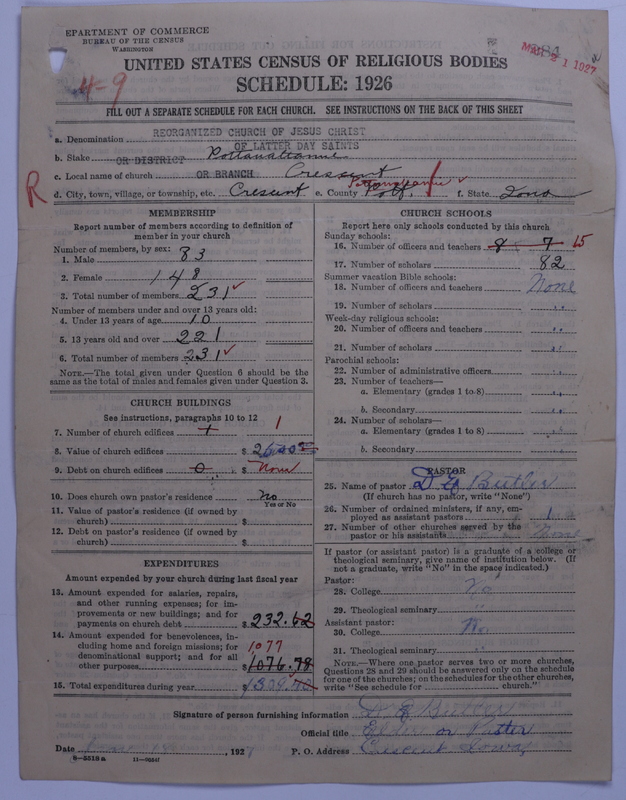 EPARTMENT OF COMMERCE
BUREAU OF THE CENSUS
WASHINGTON
MAR 21 1927
4-9
UNITED STATES CENSUS OF RELIGIOUS BODIES
SCHEDULE: 1926
FILL OUT A SEPARATE SCHEDULE FOR EACH CHURCH. SEE INSTRUCTIONS ON THE BACK OF THIS SHEET
a. Denomination REORGANIZED CHURCH OF JESUS CHRIST
OF LATTER DAY SAINTS
b. Stake OR DISTRICT Pottawattamie
c. Local name of church OR BRANCH Crescent
R
d. City, town, village, or township, etc. Crescent e. County Pott. Pottawattamie f. State Iowa
MEMBERSHIP
Report number of members according to definition of
member in your church
Number of members, by sex:
1. Male 83
2. Female 148
3. Total number of members 231
Number of members under and over 13 years old:
4. Under 13 years of age 10
5. 13 years old and over 221
6. Total number of members 231
NOTE.—The total given under Question 6 should be the
same as the total of males and females given under Question 3.
CHURCH BUILDINGS
See instructions, paragraphs 10 to 12
7. Number of church edifices 1 1
8. Value of church edifices $ 2600
9. Debt on church edifices 0 $ None
10. Does church own pastor's residence No
Yes or No
11. Value of pastor's residence (if owned by
church) $
12. Debt on pastor's residence (if owned by
church) $
EXPENDITURES
Amount expended by your church during last fiscal year
13. Amount expended for salaries, repairs,
and other running expenses; for im-
provements or new buildings; and for
payments on church debt $ 232.62
14. Amount expended for benevolences, in-
cluding home and foreign missions; for
denominational support; and for all
other purposes 1077 $ 1076.78
15. Total expenditures during year $ 1309.40
CHURCH SCHOOLS
Report here only schools conducted by this church
Sunday schools:
16. Number of officers and teachers 8 7 15
17. Number of scholars 82
Summer vacation Bible schools:
18. Number of officers and teachers None
19. Number of scholars "
Week-day religious schools:
20. Number of officers and teachers "
21. Number of scholars "
Parochial schools:
22. Number of administrative officers "
23. Number of teachers—
a. Elementary (grades 1 to 8) "
b. Secondary "
24. Number of scholars—
a. Elementary (grades 1 to 8) "
b. Secondary "
PASTOR
25. Name of pastor D E Butler
(If church has no pastor, write "None")
26. Number of ordained ministers, if any, em-
ployed as assistant pastors 1
27. Number of other churches served by the
pastor or his assistants None
If pastor (or assistant pastor) is a graduate of a college or
theological seminary, give name of institution below. (If
not a graduate, write "No" in the space indicated.)
Pastor:
28. College No
29. Theological seminary "
Assistant pastor:
30. College No
31. Theological seminary "
NOTE.—Where one pastor serves two or more churches,
Questions 28 and 29 should be answered only on the schedule
for one of the churches; on the schedules for the other churches,
write "See schedule for church."
Signature of person furnishing information D E Butler
Official title Elder or Pastor
Date , 1927 P. O. Address Crescent Iowa
8-5518a 11-9054f